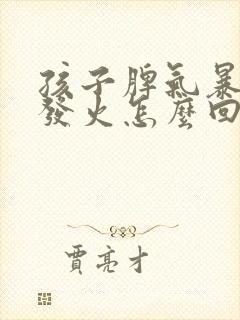 孩子脾氣暴
發火怎麼回
賈亮才